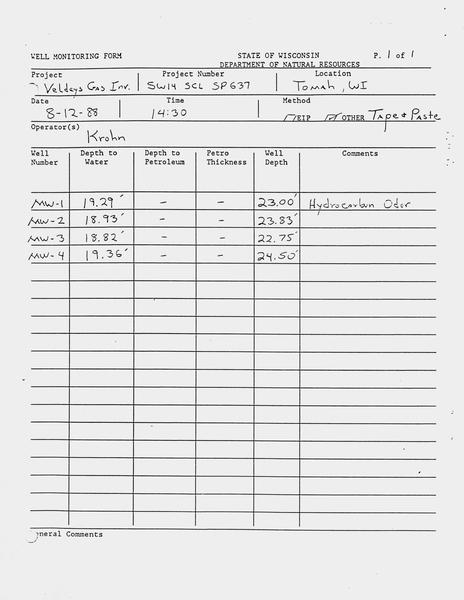 WELL MONITORING FORM STATE OF WISCONSIN P. 1 of 1
DEPARTMENT OF NATURAL RESOURCES
Project Project Number Location
Veldeys Gas Inv. SW14 SCL SP637 Tomah, WI
Date Time Method
8-12-88 14:30 EIP OTHER Tape & Paste
Operator(s)
Krohn
Well Depth to Depth to Petro Well Comments
Number Water Petroleum Thickness Depth
MW-1 19.29' - - 23.00' Hydrocarbon Odor
MW-2 18.93' - - 23.83'
MW-3 18.82' - - 22.75'
MW-4 19.36' - - 24.50'
neral Comments